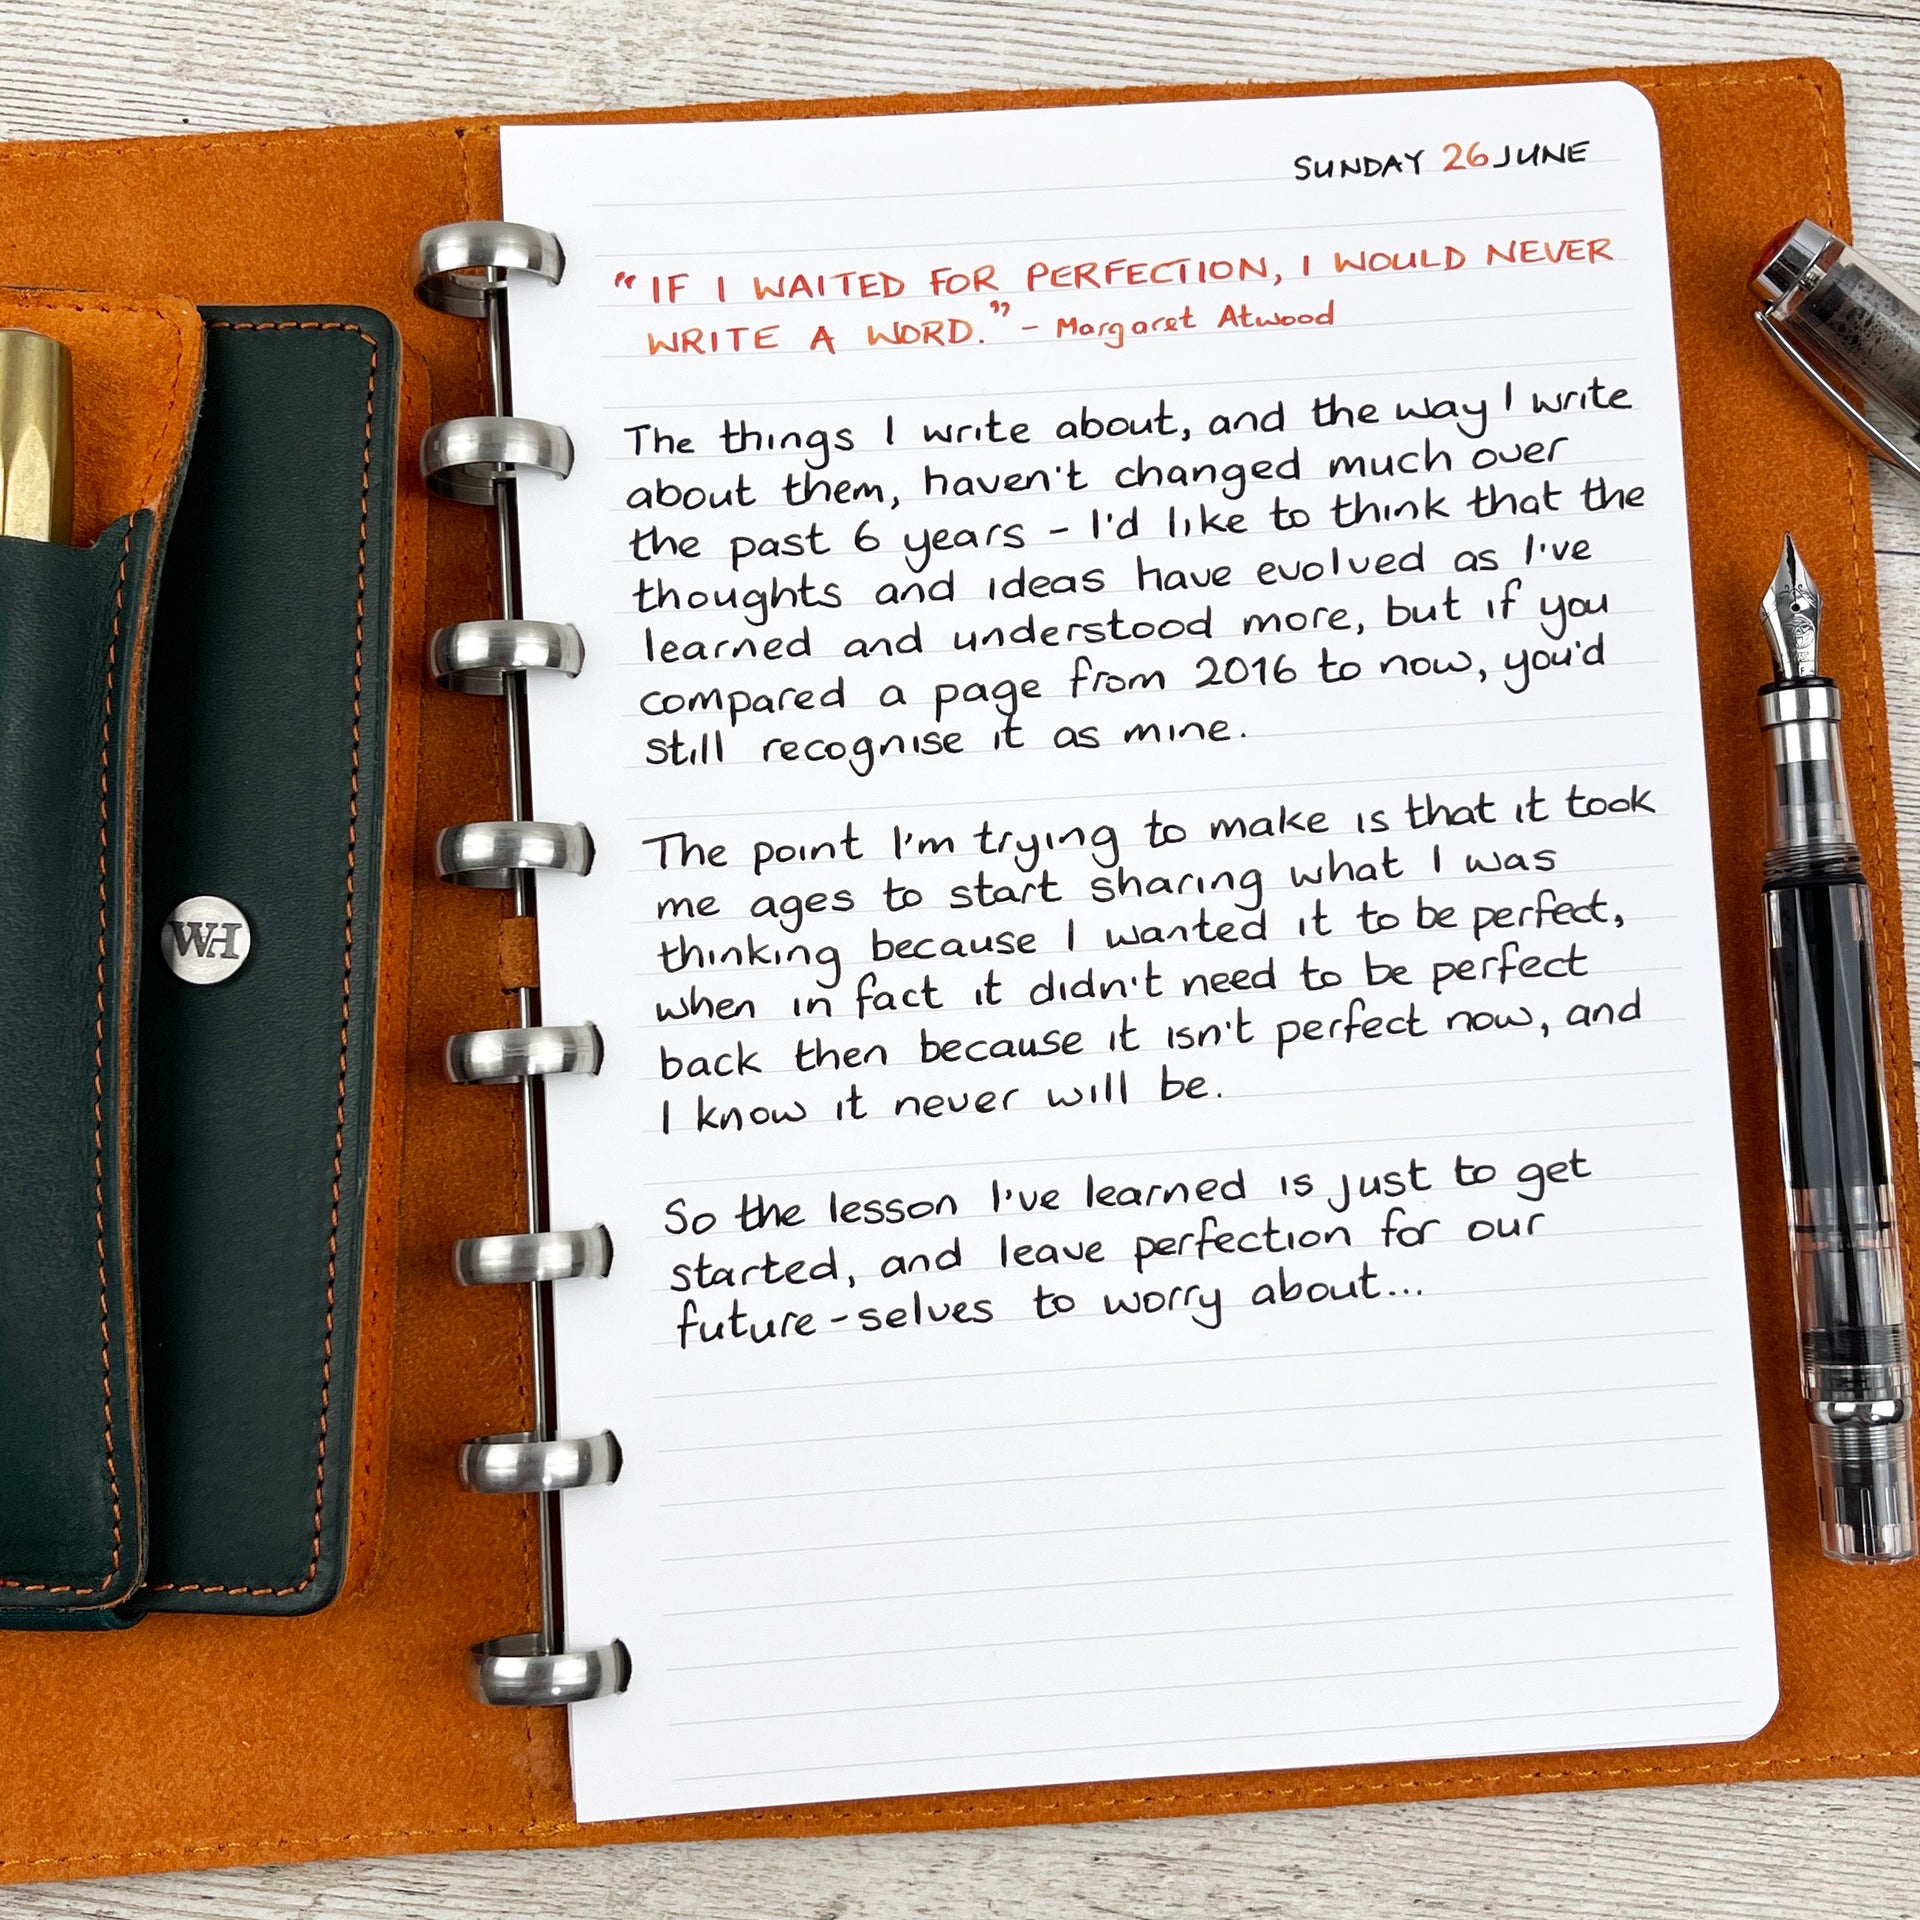 SUNDAY 26 JUNE
"IF I WAITED FOR PERFECTION, I WOULD NEVER
WRITE A WORD." - Margaret Atwood
The things I write about, and the way I write
about them, haven't changed much over
the past 6 years - I'd like to think that the
thoughts and ideas have evolved as I've
learned and understood more, but if you
compared a page from 2016 to now, you'd
still recognise it as mine.
The point I'm trying to make is that it took
me ages to start sharing what I was
thinking because I wanted it to be perfect,
when in fact it didn't need to be perfect
back then because it isn't perfect now, and
I know it never will be.
So the lesson I've learned is just to get
started, and leave perfection for our
future-selves to worry about...
WH